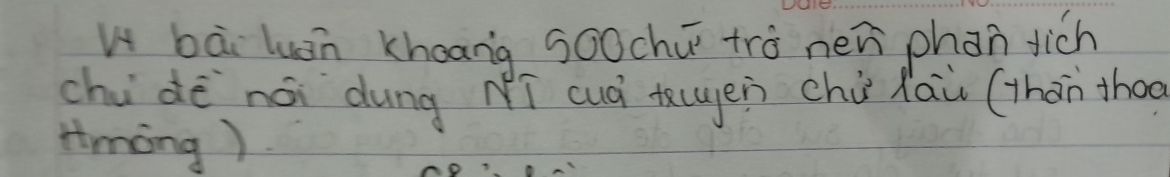 Vt bài luận khoảng 500 chữ trở nên phân tích
chủ đề nội dung NT của truyện chử lầu (thần thoại
Hmông).